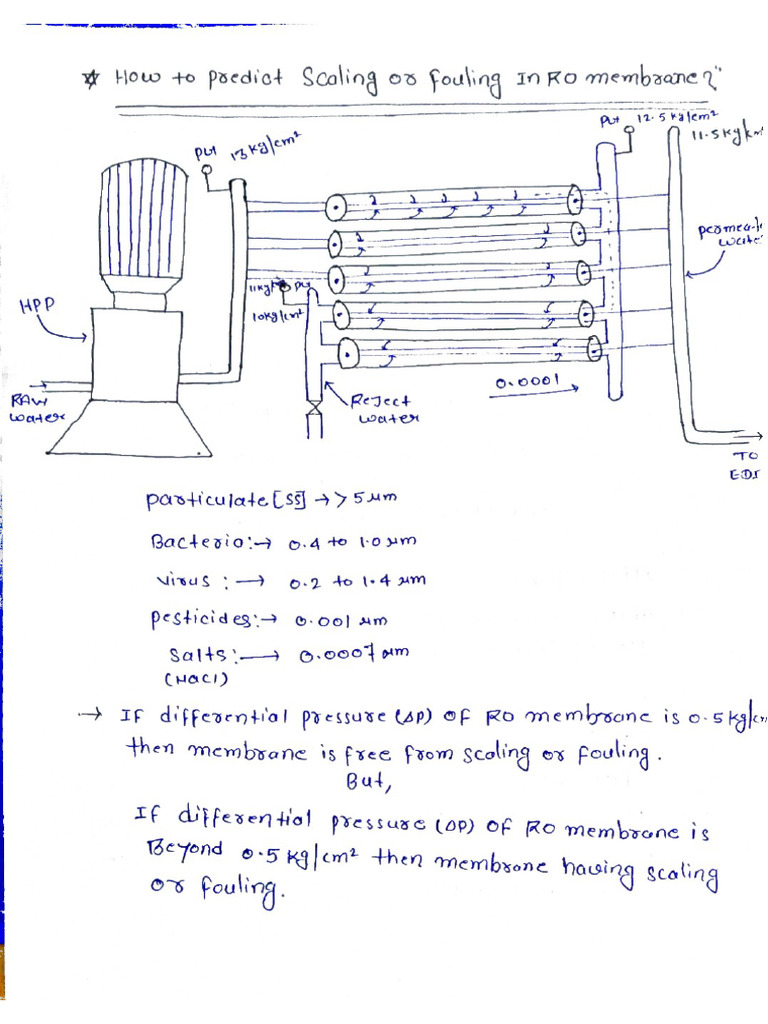 ☆ How to predict Scaling or fouling In RO membrane?"
PLt 13 kg/cm²
PLt 12.5 kg/cm²
11.5 kg/
HPP
RAW
water
11kg/ PLt
10kg/cm²
Reject
water
0.0001
water
TO
EDI
particulate [SS] → > 5 µm
Bacteria:→ 0.4 to 1.0 µm
virus : → 0.2 to 1.4 µm
pesticides:→ 0.001 µm
salts: → 0.0007 µm
(NaCl)
→ If differential pressure (ΔP) of RO membrane is 0.5 kg/
then membrane is free from scaling or fouling.
But,
If differential pressure (ΔP) of RO membrane is
Beyond 0.5 kg/cm² then membrane having scaling
or fouling.